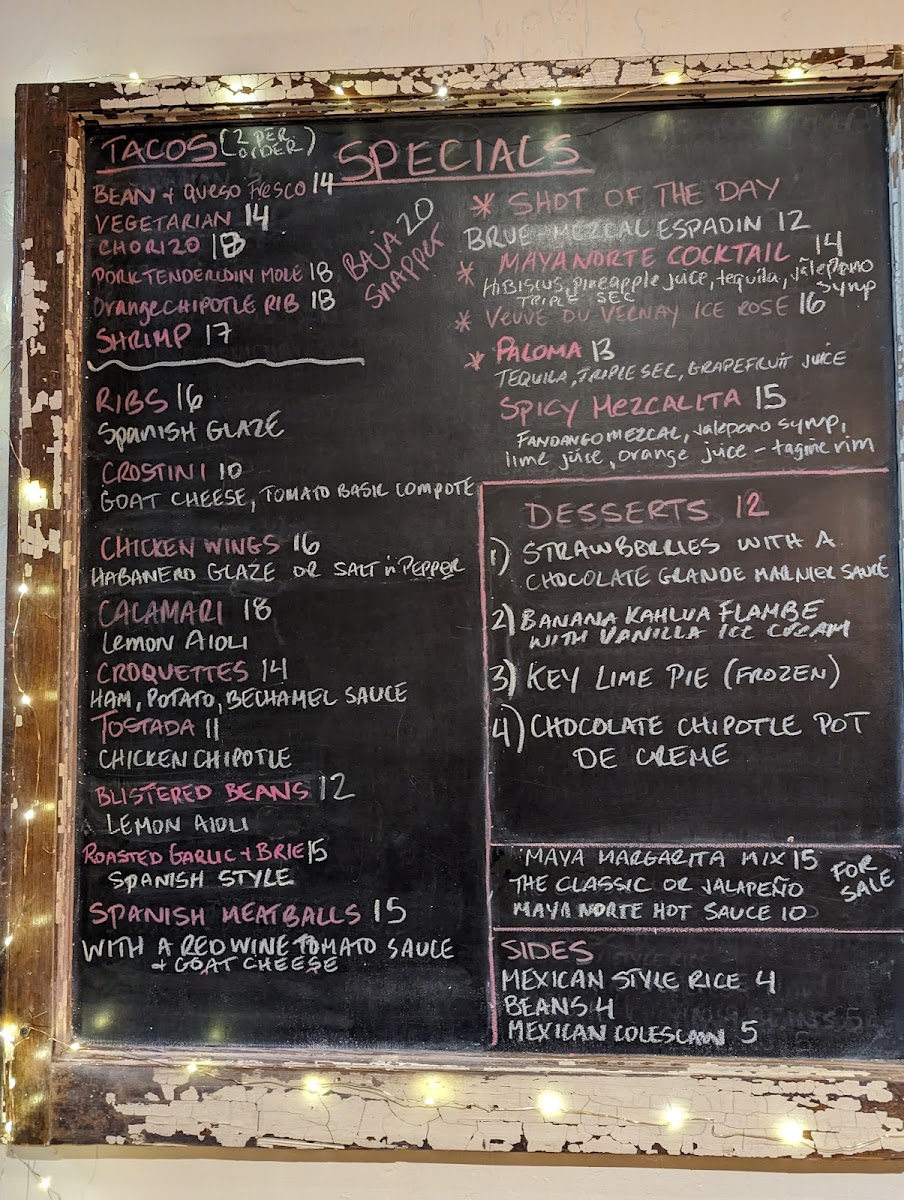 TACOS (2 PER ORDER)
SPECIALS
BEAN + QUESO FRESCO 14
VEGETARIAN 14
CHORIZO 18
PORK TENDERLOIN MOLE 18
ORANGE CHIPOTLE RIB 18
SHRIMP 17
BAJA 20
SNAPPER
RIBS 16
SPANISH GLAZE
CROSTINI 10
GOAT CHEESE, TOMATO BASIL COMPOTE
CHICKEN WINGS 16
HABANERO GLAZE OR SALT N PEPPER
CALAMARI 18
LEMON AIOLI
CROQUETTES 14
HAM, POTATO, BECHAMEL SAUCE
TOSTADA 11
CHICKEN CHIPOTLE
BLISTERED BEANS 12
LEMON AIOLI
ROASTED GARLIC + BRIE 15
SPANISH STYLE
SPANISH MEATBALLS 15
WITH A RED WINE TOMATO SAUCE
+ GOAT CHEESE
* SHOT OF THE DAY
MEZCAL ESPADIN 12
* MAYA NORTE COCKTAIL 14
HIBISCUS, PINEAPPLE JUICE, TEQUILA, JALEPENO SYRUP
TRIPLE SEC
* VEUVE DU VERNAY ICE ROSE 16
* PALOMA 13
TEQUILA, TRIPLE SEC, GRAPEFRUIT JUICE
SPICY MEZCALITA 15
FANDANGO MEZCAL, JALEPENO SYRUP,
LIME JUICE, ORANGE JUICE - TAGINE RIM
DESSERTS 12
1) STRAWBERRIES WITH A
CHOCOLATE GRANDE MARNIER SAUCE
2) BANANA KAHLUA FLAMBE
WITH VANILLA ICE CREAM
3) KEY LIME PIE (FROZEN)
4) CHOCOLATE CHIPOTLE POT
DE CREME
MAYA MARGARITA MIX 15
THE CLASSIC OR JALAPEÑO
MAYA NORTE HOT SAUCE 10
FOR
SALE
SIDES
MEXICAN STYLE RICE 4
BEANS 4
MEXICAN COLESLAW 5